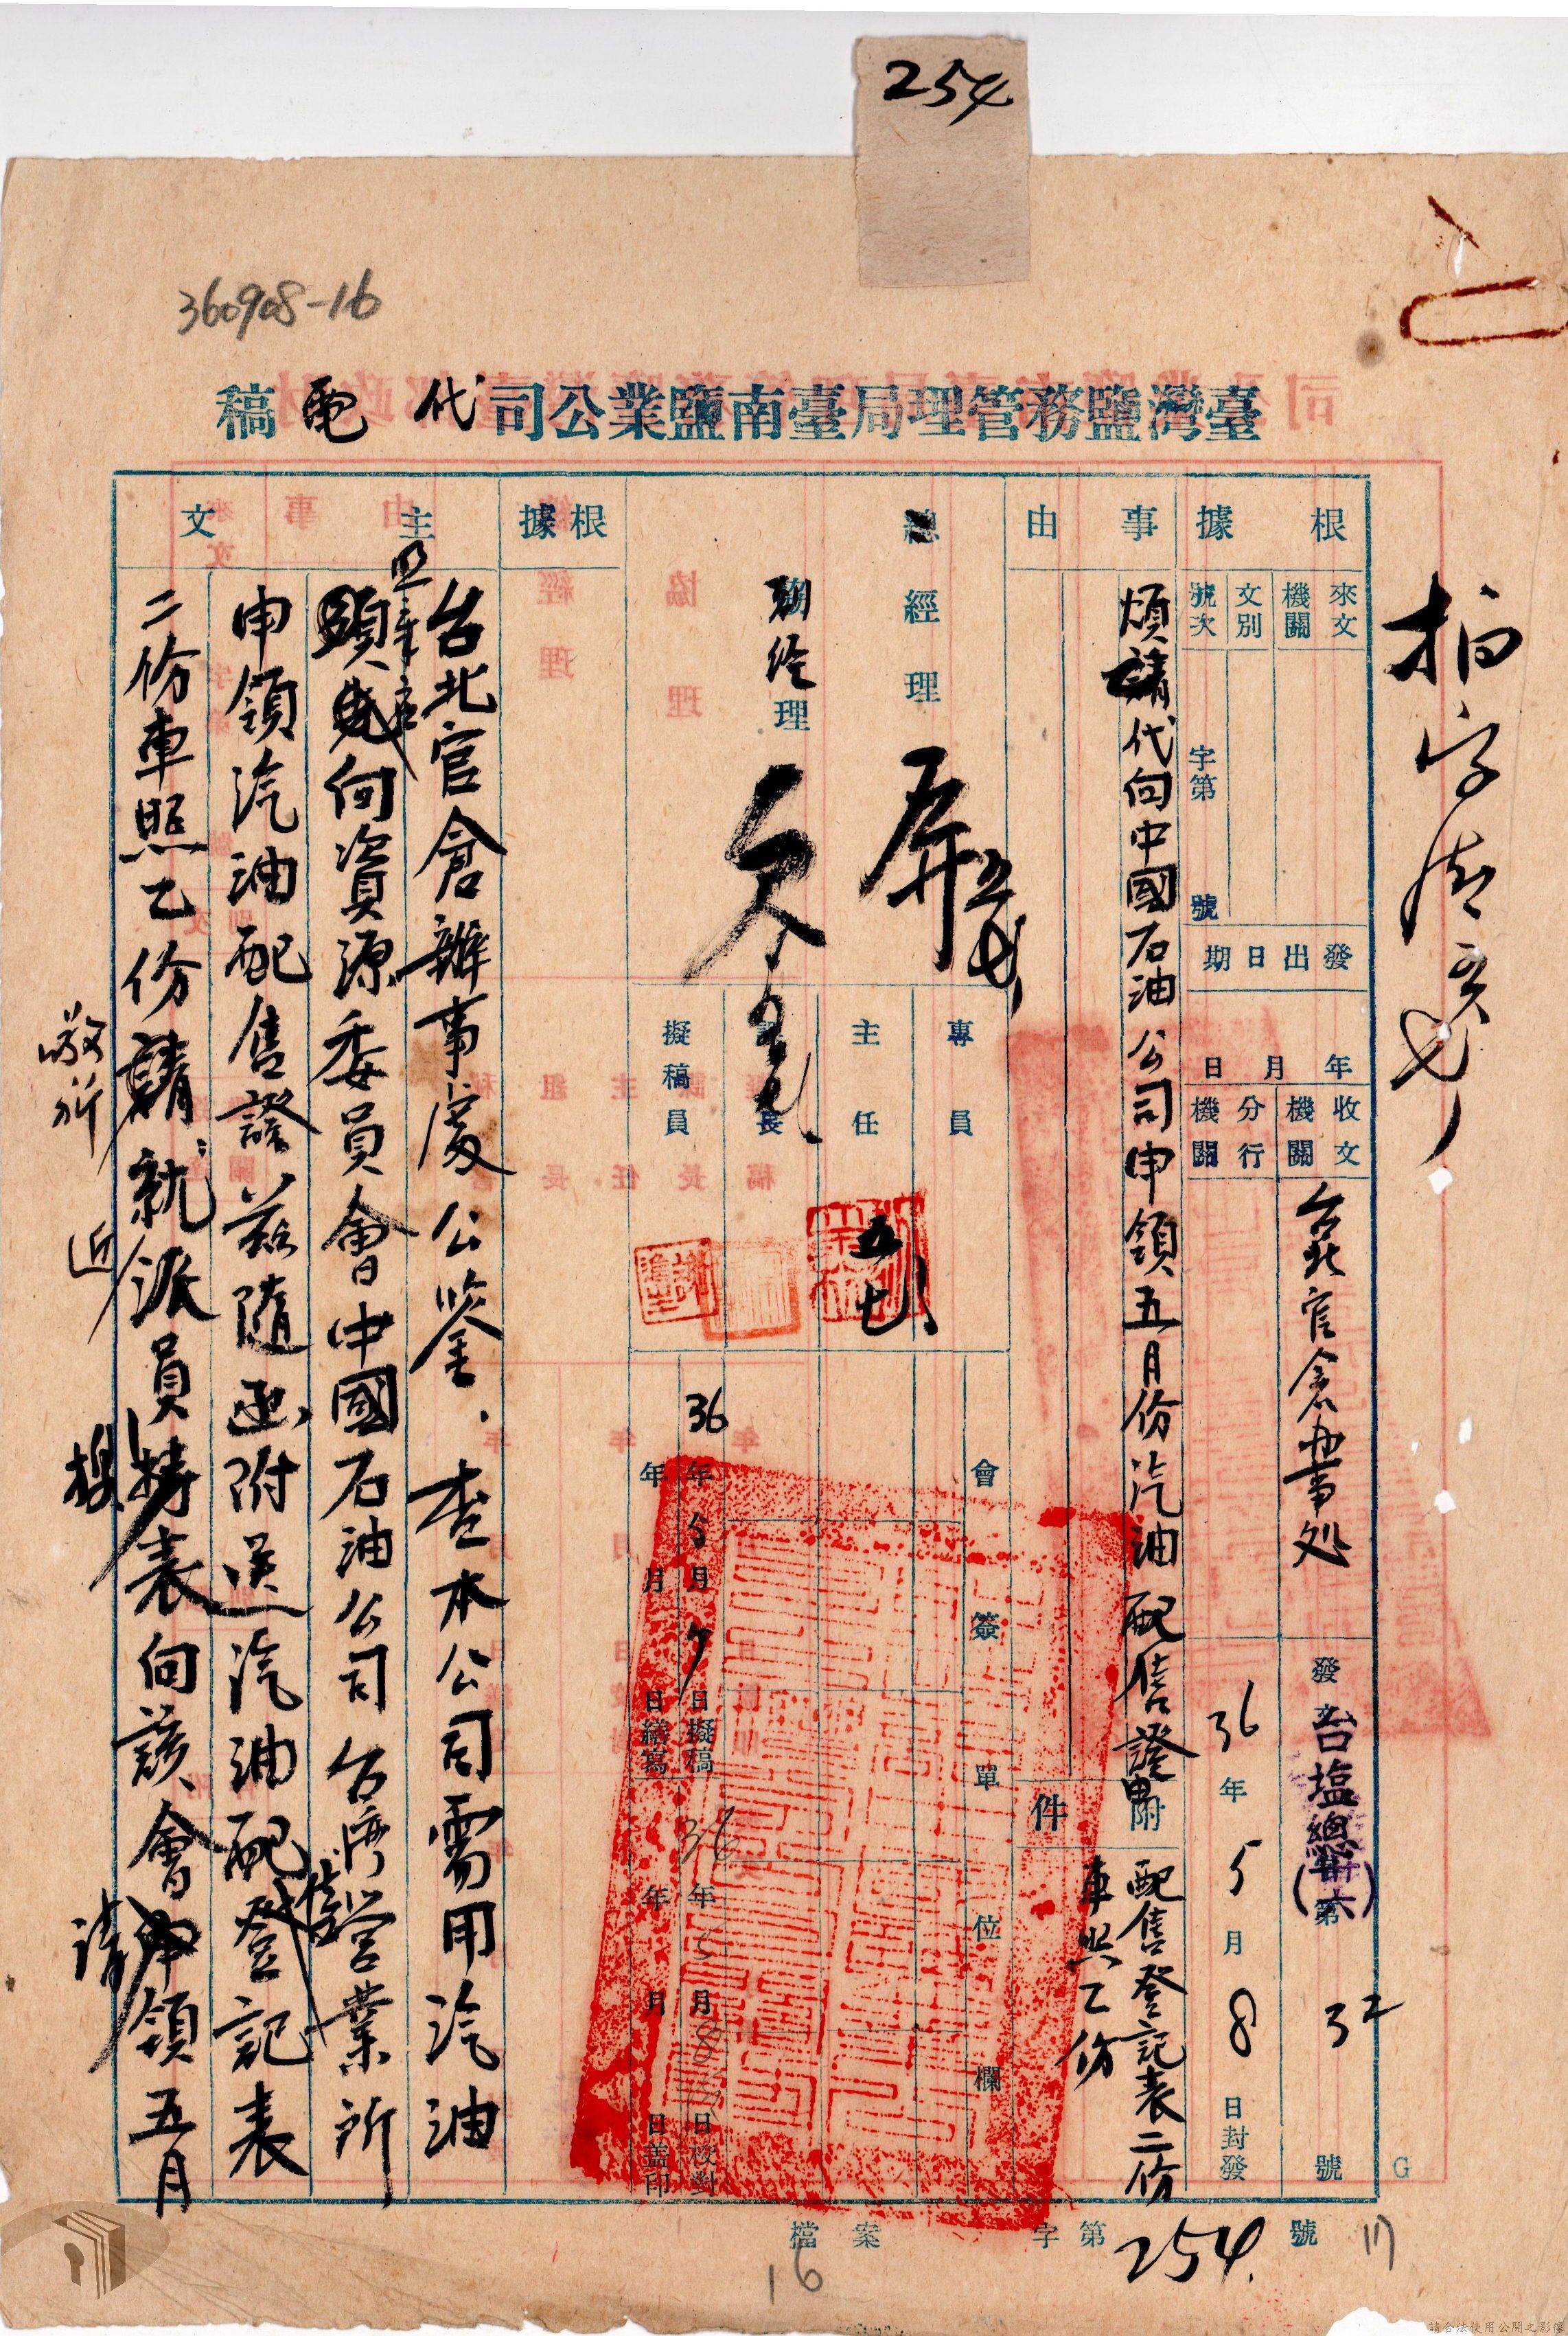 254
360908-16
臺灣鹽務管理局臺南鹽業公司代電稿
根據
來文機關
文別
號次
字第
號
發出日期
年
月
日
收文機關
台北官倉办事处
分行機關
發文
台塩總
(六)
第
32
號
36年5月8日封發
事由
煩請代向中國石油公司申領五月份汽油配售證
附件
配售登記表二份
車照乙份
總經理
經理
專員
主任
長
擬稿員
五七
會簽單位欄
36年5月7日擬稿
年月日繕寫
36年5月8日校對
年月日蓋印
根據
主文
台北官倉辦事處公鑒.查本公司需用汽油
向資源委員會中國石油公司台灣營業所
申領汽油配售證茲隨函附送汽油配售登記表
二份車照乙份請就近派員持表向該會申請領五月
檔案
字第
254.
號
17
16
G
請合法使用公開之影像